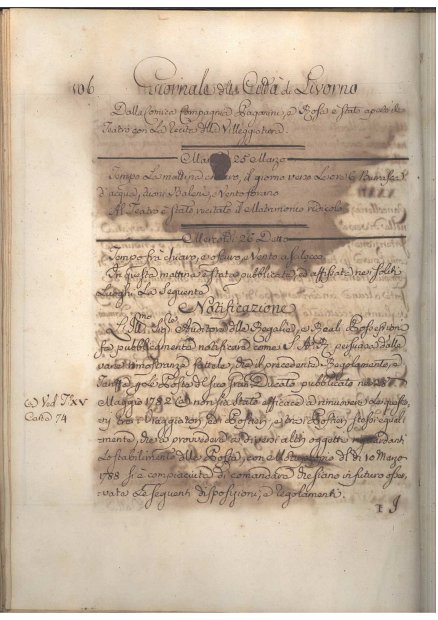 106 Giornale della Città di Livorno
Dalla Comica Compagnia Paganini, e Rosa è stato aperto il
Teatro con La recita della Villeggiatura.
25 Marzo
Tempo La mattina chiaro, il giorno verso Le ore 6 Burrasca
d'acqua, tuoni Baleni, e Vento
Al Teatro è stato recitato il Matrimonio ridicolo
Mercoldì 26 Detto
Tempo frà chiaro, e oscuro, e Vento a scilocco
In questa mattina è stata pubblicata, ed affissata nei soliti
Luoghi La seguente
Notificazione
L'Ill.mo Auditore delle Regalie, e Reali Possessioni
fà pubblicamente notificare come S. A. R. persuasa dalle
varie rimostranze fattele, che il precedente Regolamento, e
tariffa per le Poste del suo Gran-Ducato pubblicato ne
Maggio 1782 non sia stato efficace a rimuovere
i Viaggiatori
mente, che a provvedere a diversi altri oggetti riguardanti
Lo stabilimento delle Poste, con del dì 10 Marzo
1788 si è compiaciuta di comandare che siano in futuro osser-
vate Le seguenti disposizioni, e regolamenti.
Ved. T. XV
Carta 74
I